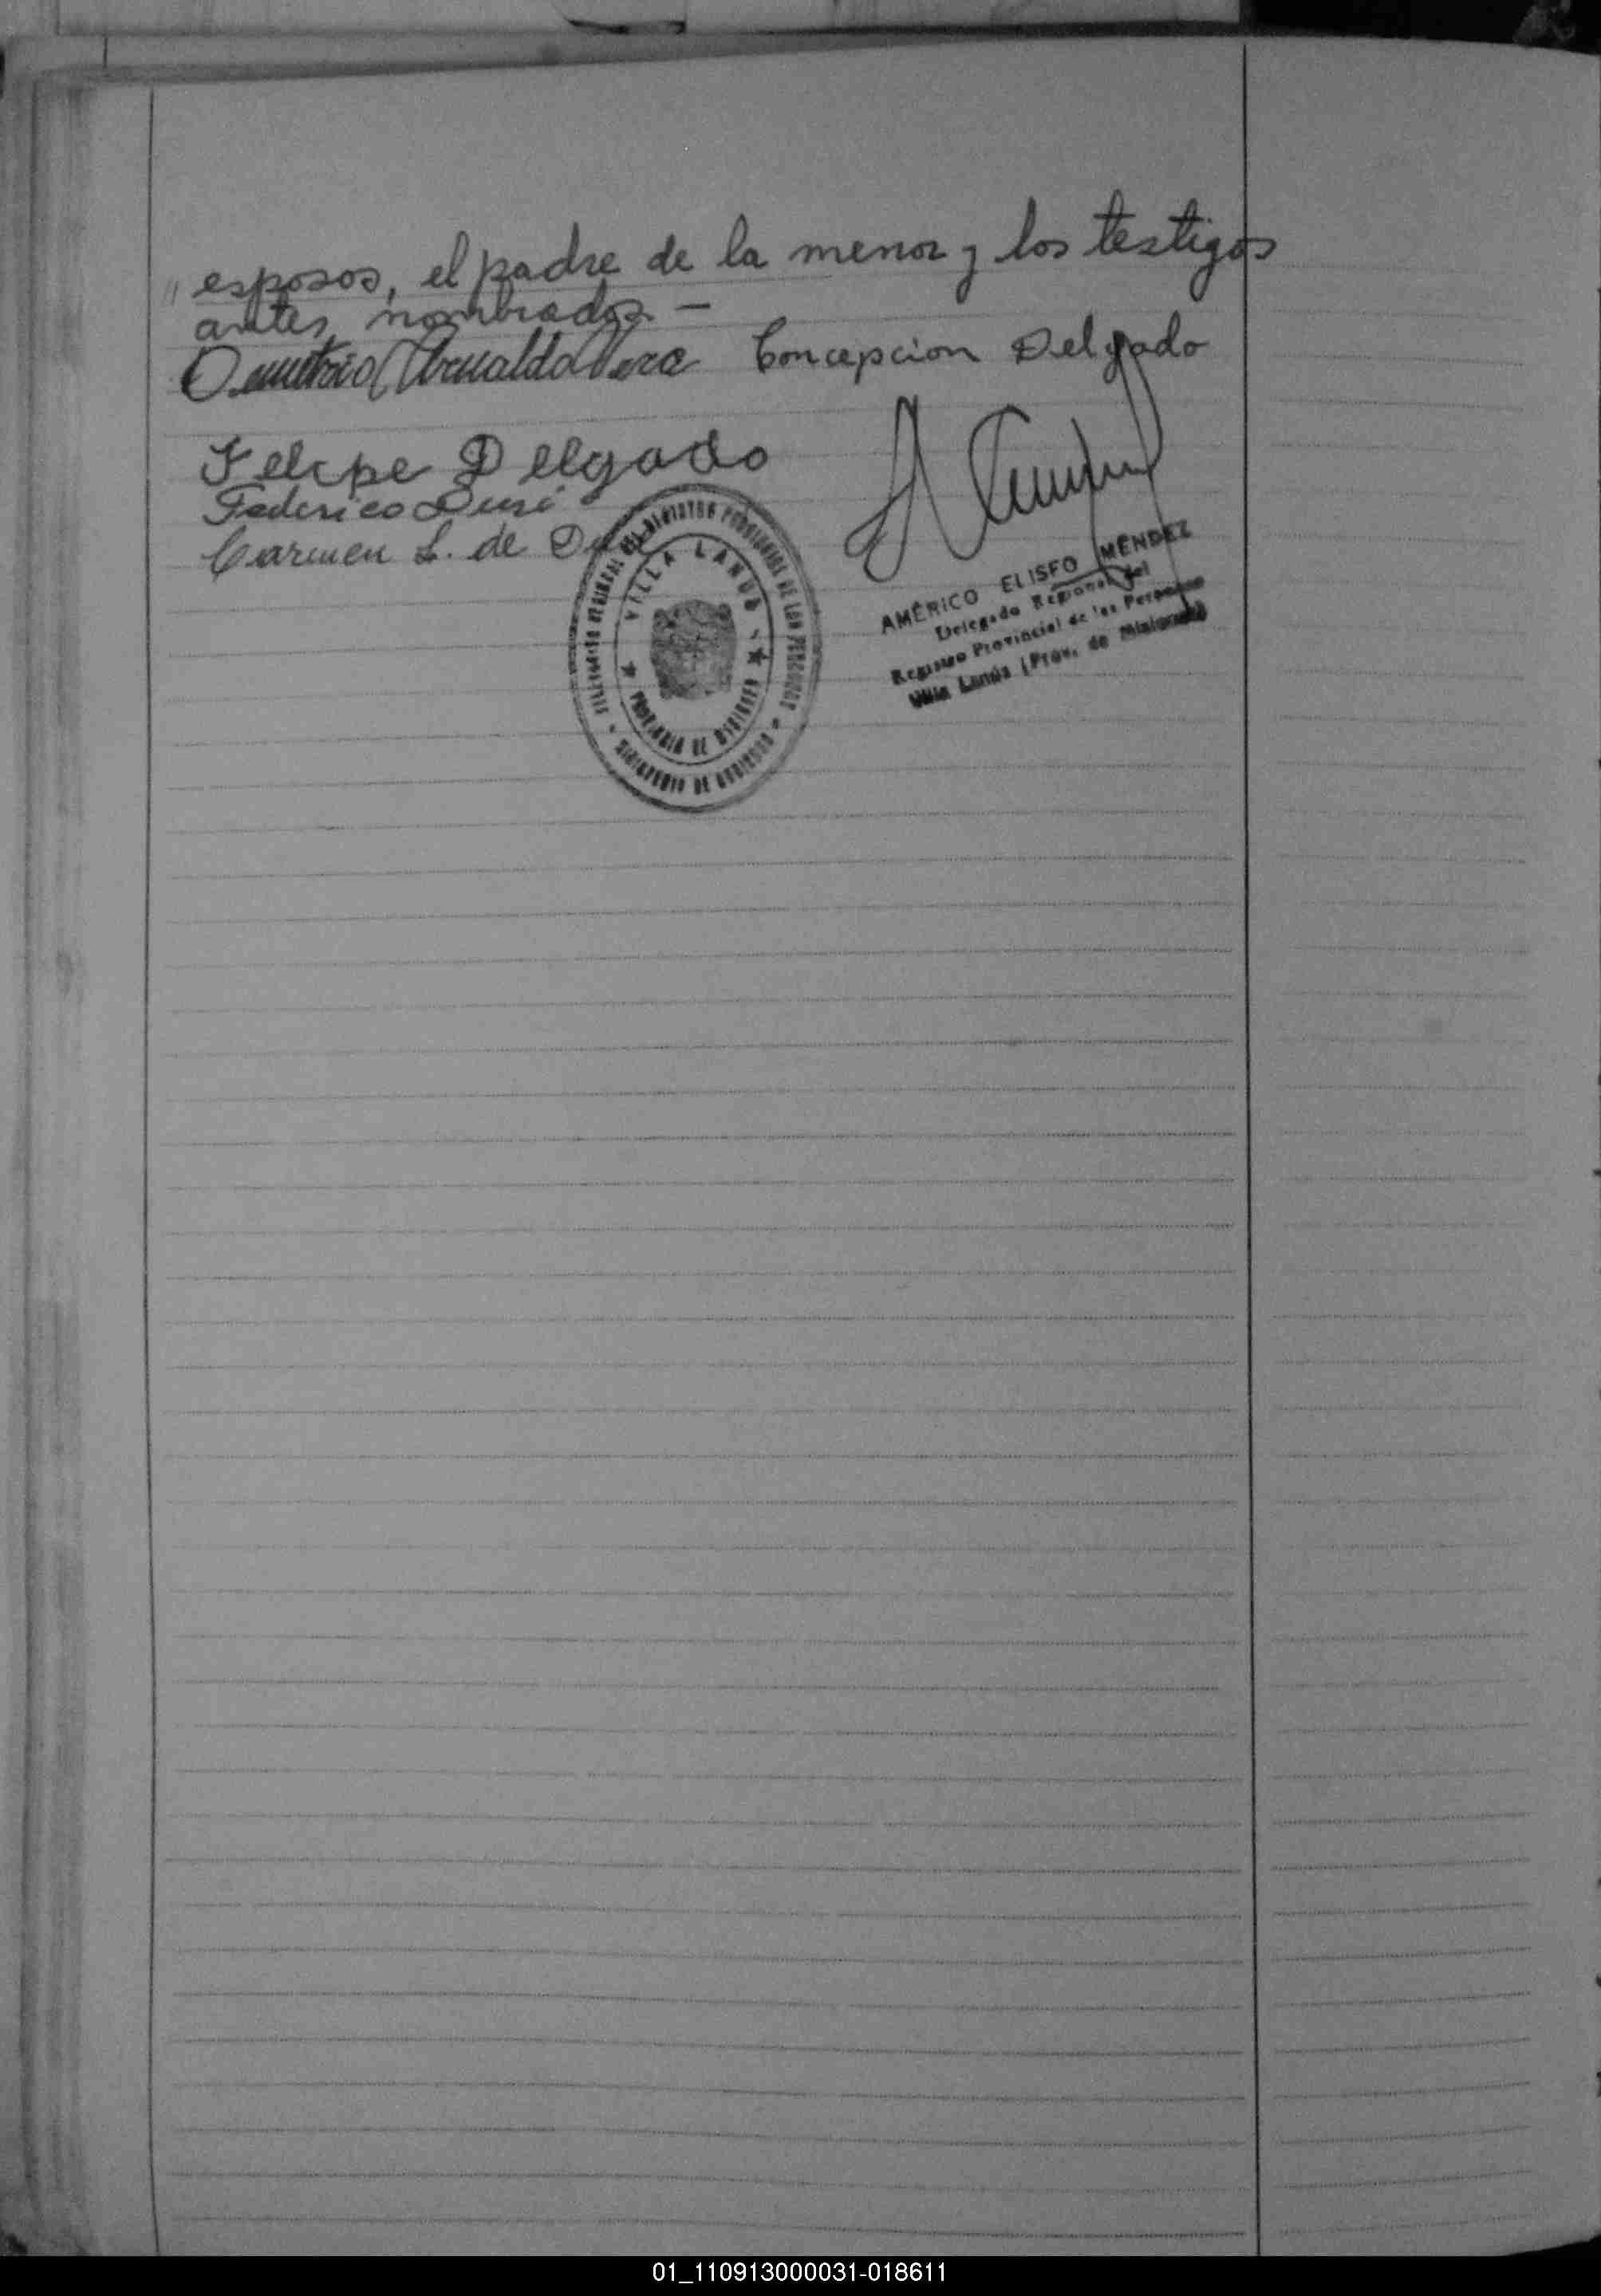 " esposos, el padre de la menor y los testigos
antes nombrados. —
Demetrio Arnaldo Vera Concepcion Delgado
Felipe Delgado
Federico
Carmen L. de
VILLA LANUS
PROVINCIA DE MISIONES
REGISTRO PROVINCIAL DE LAS PERSONAS
MINISTERIO DE GOBIERNO
AMÉRICO ELISEO MÉNDEZ
Delegado Regional del
Registro Provincial de las Personas
Villa Lanús (Prov. de Misiones)
01_110913000031-018611